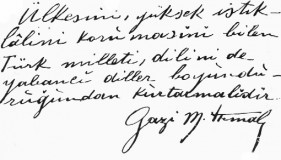 Ülkesini, yüksek istik-
lâlini korumasını bilen
Türk milleti, dilini de
yabancı diller boyundu-
ruğundan kurtarmalıdır.
Gazi M. Kemal